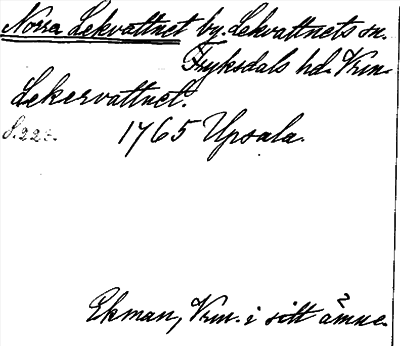 Norra Lekvattnet by. Lekvattnets sn.
Fryksdals hd. Vrm.
Lekervattnet.
S. 223. 1765 Upsala.
Ekman, Vrm. i sitt ämne.